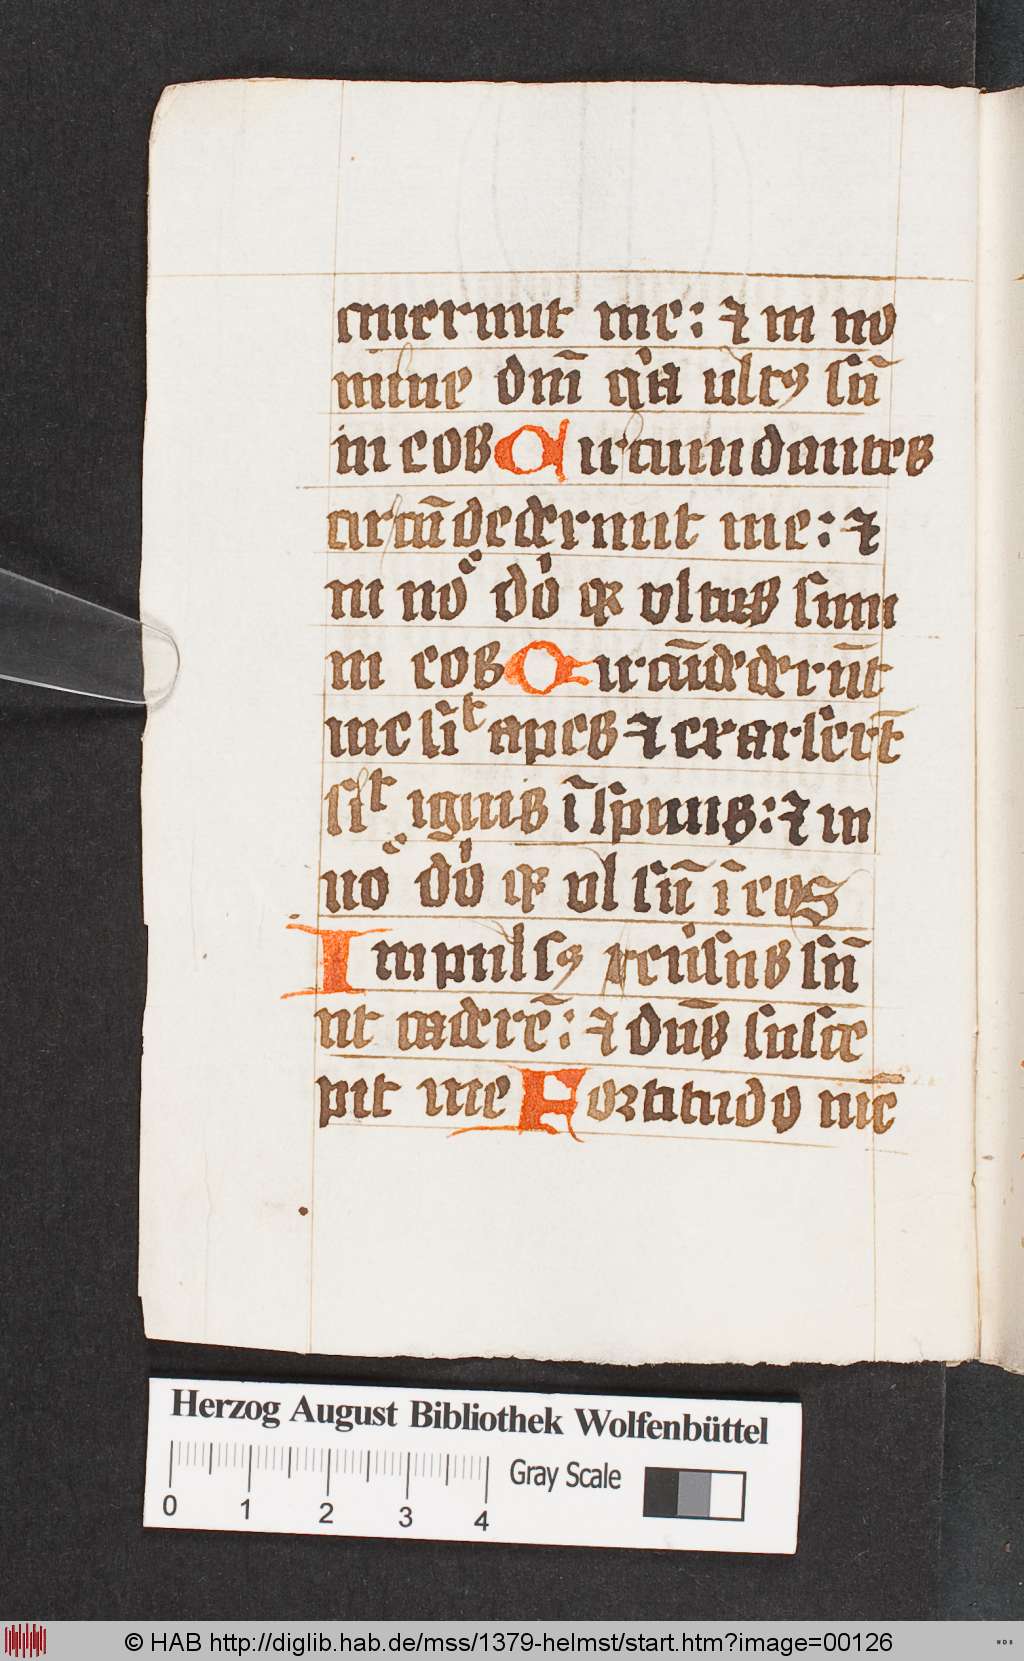 cuierunt me: ⁊ in no
mine dnī q'a ultꝯ sū
in eos Circumdantes
circūdederunt me: ⁊
in noͤ do' qꝛ ultus sum
in eos Circūdederūt
me siͭ apes ⁊ exarserūt
siͭ ignis ī spinis: ⁊ in
noͤ do' qꝛ ul sū ī eos
Impulsꝯ euersus sū
ut caderē: ⁊ dūs susce
pit me Fortitudo mē
Herzog August Bibliothek Wolfenbüttel
Gray Scale
0 1 2 3 4
© HAB http://diglib.hab.de/mss/1379-helmst/start.htm?image=00126